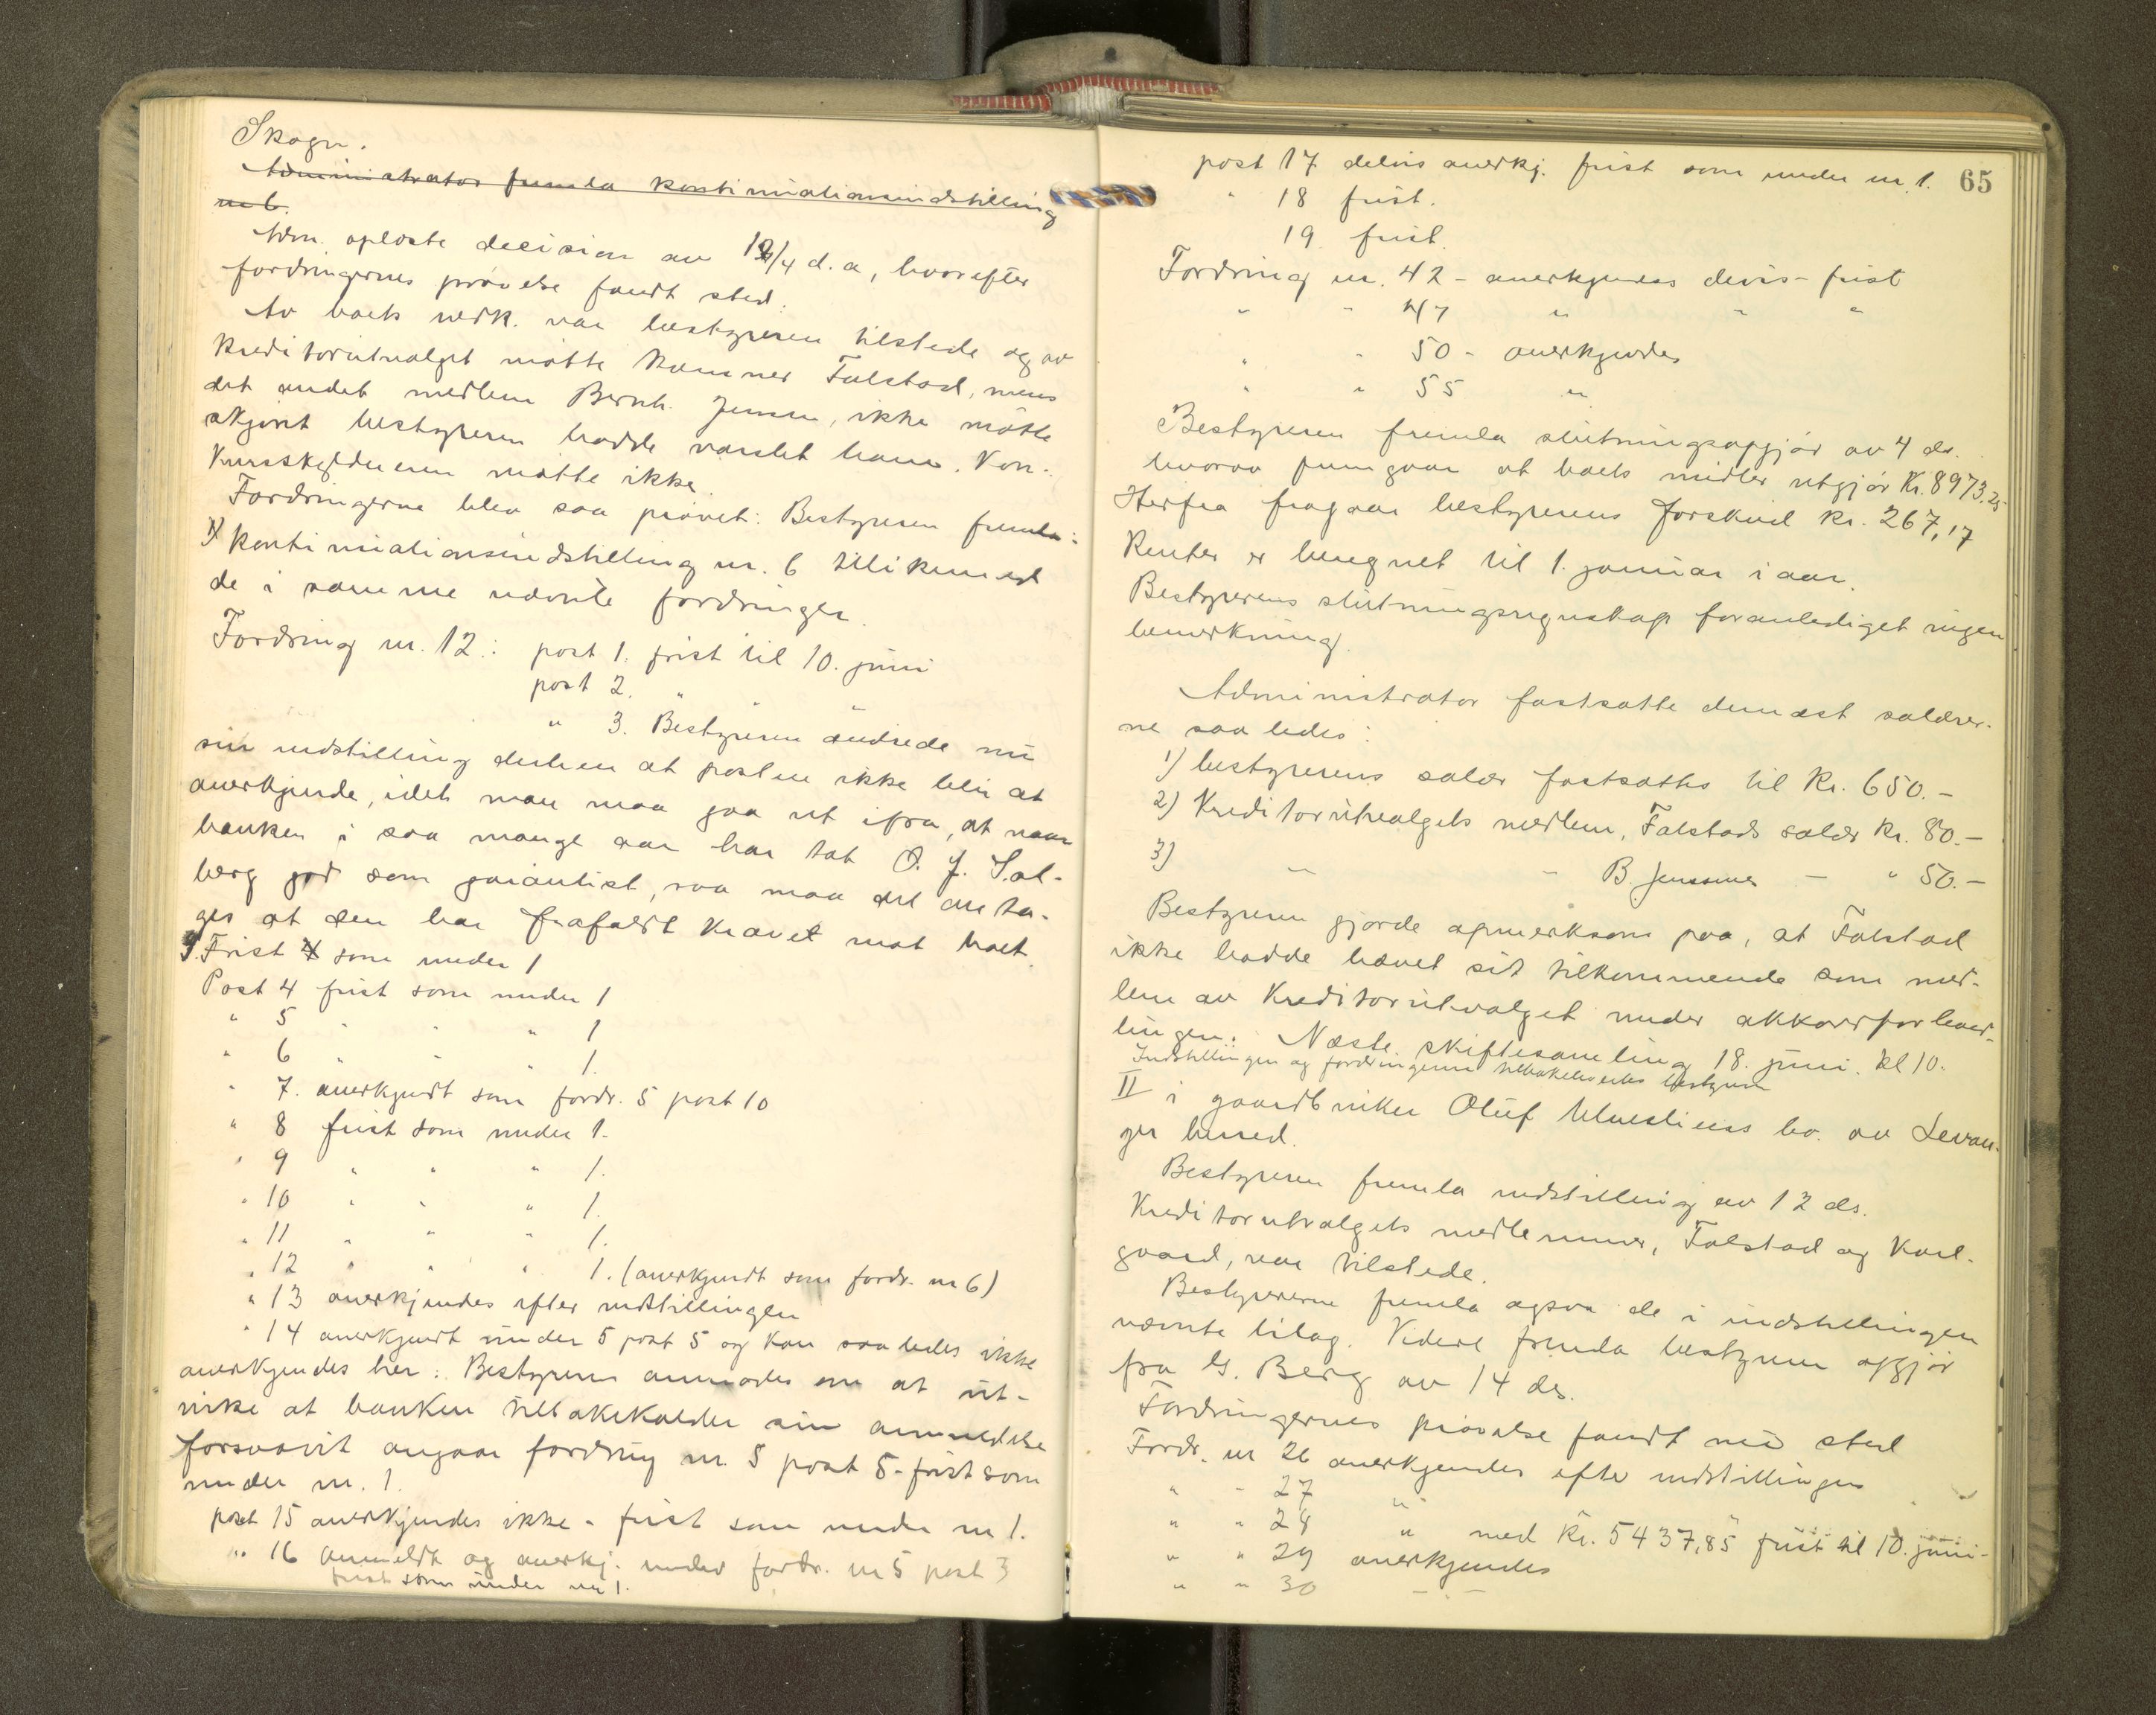 Skogn.
Administrator fremla kontinuationsindstilling
nr 6.
Adm. oplæste decision av 12/4 d.a, hvorefter
fordringernes prøvelse fandt sted.
Av boets verk. var bestyreren tilstede og av
kreditorutvalget møtte Kæmner Falstad, mens
det andet medlem Bernh. Jenssen, ikke møtte
skjønt bestyreren hadde varslet ham. Kon-
kursskyldneren møtte ikke.
Fordringerne blev saa prøvet: Bestyreren fremla:
1) kontinuationsindstilling nr. 6 tillikemed
de i samme nævnte fordringer.
Fordring nr. 12.: post 1. frist til 10. juni
post 2. " " "
" 3. Bestyreren ændrede nu
sin indstilling derhen at posten ikke blir at
anerkjende, idet man maa gaa ut ifra, at naar
banken i saa mange aar har tat O. J. Sal-
berg god som garantist, saa maa det anta-
ges at den har frafaldt kravet mot boet.
Frist som under 1
Post 4 frist som under 1
" 5 " " " 1
" 6 " " " 1.
" 7. anerkjendt som fordr. 5 post 10
" 8 frist som under 1.
" 9 " " " 1.
" 10 " " " 1.
" 11 " " " 1.
" 12 " " " 1. (anerkjendt som fordr. nr 6)
" 13 anerkjendes efter indstillingen
" 14 anerkjendt under 5 post 5 og kan saaledes ikke
anerkjendes her. Bestyreren anmodes om at ut-
virke at banken tilbakekalder sin anmeldelse
forsaavit angaar fordring nr. 5 post 5 - frist som
under nr. 1.
post 15 anerkjendes ikke - frist som under nr 1.
" 16 anmeldt og anerkj. under fordr. nr 5 post 3
frist som under nr 1.
65
post 17 delvis anerkj. frist som under nr. 1.
" 18 frist.
19 frist.
Fordring nr. 42 - anerkjendes delvis - frist
" " 47 " " "
" " 50 - anerkjendes
" " 55 "
Bestyreren fremla slutningsopgjør av 4 ds.
hvorav fremgaar at boets midler utgjør Kr. 8973.25
Herfra fragaar bestyrerens forskud kr. 267,17
Renter er beregnet til 1. januar i aar.
Bestyrerens slutningsregnskap foranlediget ingen
bemerkning.
Administrator fastsatte dernæst salærer-
ne saaledes:
1) bestyrerens salær fastsattes til kr. 650.-
2) Kreditorutvalgets medlem, Falstads salær kr. 80.-
3) " " B. Jenssens - " 50.-
Bestyreren gjorde opmerksom paa, at Falstad
ikke hadde hævet sit tilkommende som med-
lem av kreditorutvalget under akkordforhand-
lingen. Næste skiftesamling 18. juni. kl 10.
Indstillingen og fordringerne tilbakeleveredes bestyreren
II i gaardbruker Oluf bo. av Levan-
ger herred.
Bestyreren fremla indstilling av 12 ds.
Kreditorutvalgets medlemmer, Falstad og Karl-
gaard, var tilstede.
Bestyrerne fremla ogsaa de i indstillingen
nævnte bilag. Videre fremla bestyreren opgjør
fra G. Berg av 14 ds.
Fordringernes prøvelse fandt nu sted
Fordr. nr 26 anerkjendes efter indstillingen
" " 27 "
" " 28 " med kr. 5437,85 frist til 10. juni -
" " 29 anerkjendes
" " 30 - " -